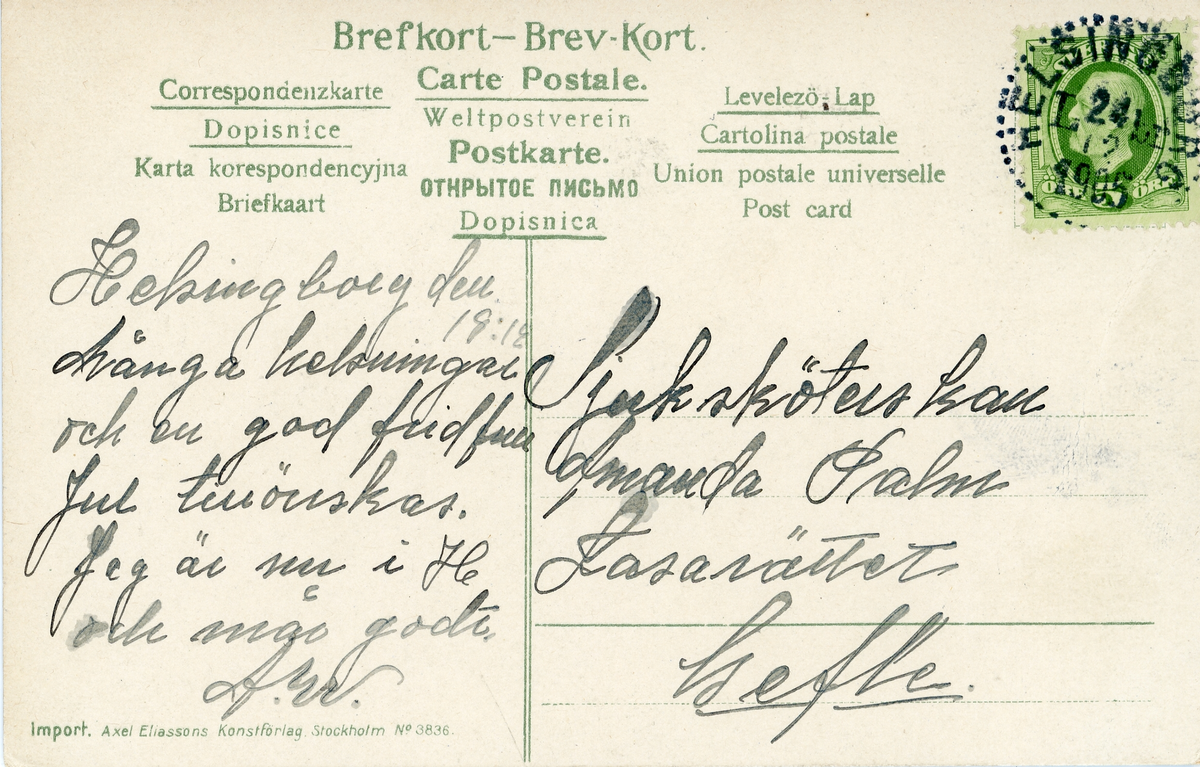 Brefkort – Brev-Kort.
Carte Postale.
Weltpostverein
Postkarte.
ОТНРЫТОЕ ПИСЬМО
Dopisnica
Correspondenzkarte
Dopisnice
Karta korespondencyjna
Briefkaart
Levelezö-Lap
Cartolina postale
Union postale universelle
Post card
HELSINGBORG
24
12
1905
5
ÖRE
Helsingborg den
18:12
Många helsningar
och en god fridfull
Jul tillönskas.
Jag är nu i H
och mår godt.
Sjuksköterskan
Amanda Palm
Lasarättet
Gefle.
Import. Axel Eliassons Konstförlag. Stockholm No 3836.